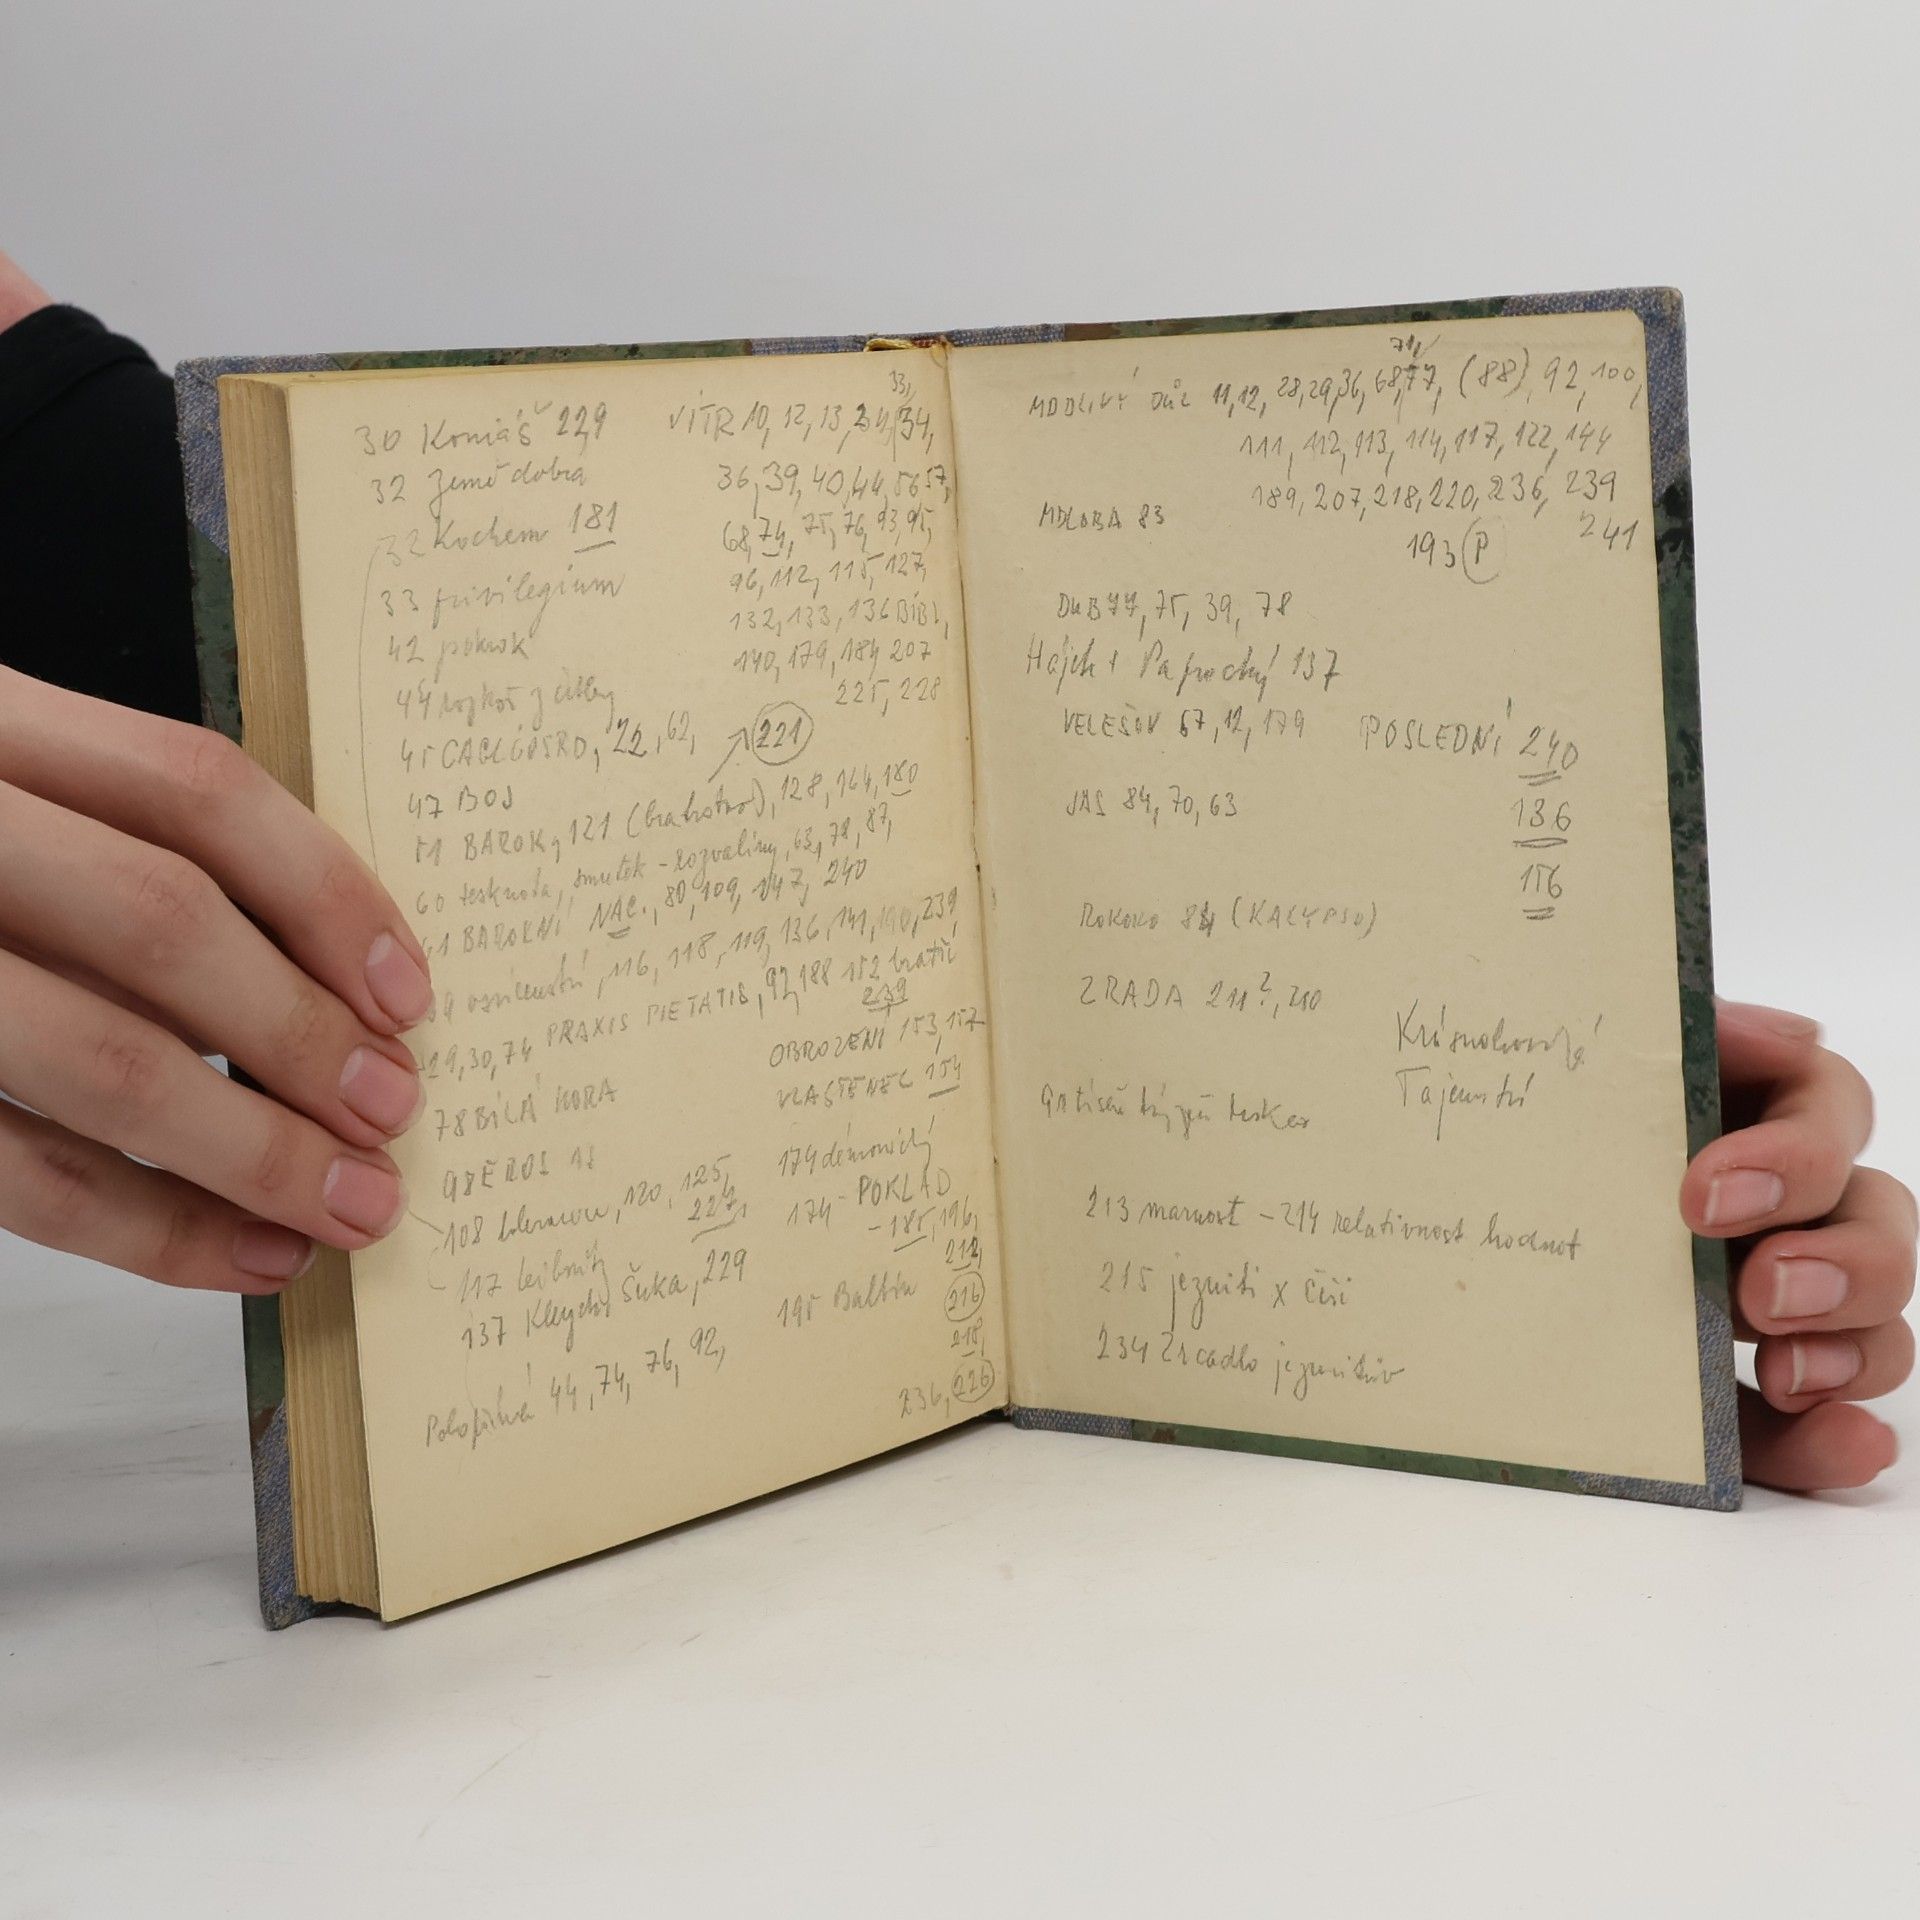 30 Koniáš 229
32 Země dobra
32 Kochem 181
33 privilegium
42 pokrok
45 CAGLIOSTRO, 22, 62,
47 BOJ
51 BAROK, 121 128, 164, 180
60 tesknota, smutek - rozvaliny, 63, 78, 87,
BAROKNÍ NAC., 80, 109, 147, 240
116, 118, 119, 136, 141, 190, 239
19, 30, 74 PRAXIS PIETATIS, 92, 188 152 bratří
239
78 BÍLÁ HORA
98 EROS
108 tolerance, 120, 125,
227,
117 Leibnitz
137 Kleych, Šuka, 229
44, 74, 76, 92,
33,
VÍTR 10, 12, 13, 34,
36, 39, 40, 44, 56 57,
68, 74, 75, 76, 93, 95,
96, 112, 115, 127,
132, 133, 136 BIBL,
140, 179, 184 207
225, 228
221
OBROZENÍ 153, 157
VLASTENEC 154
174 démonický
174 - POKLAD
- 185, 196,
212,
195 Balbín
216
218,
236, 226
71,
MDDLIVÝ DŮL 11, 12, 28, 29, 36, 68, 77, (88), 92, 100,
111, 112, 113, 114, 117, 122, 144
189, 207, 218, 220, 236, 239
241
MDLOBA 83
193 P
DUB 77, 75, 39, 78
Hájek + Paprocký 137
VELEŠOV 67, 12, 179
POSLEDNÍ 240
JAS 84, 70, 63
136
156
ROKOKO 84 (KALYPSO)
ZRADA 211?, 210
Krásnohorská
Tajemství
213 marnost - 214 relativnost hodnot
215 jezuiti x Češi
234 Zrcadlo jezuitův